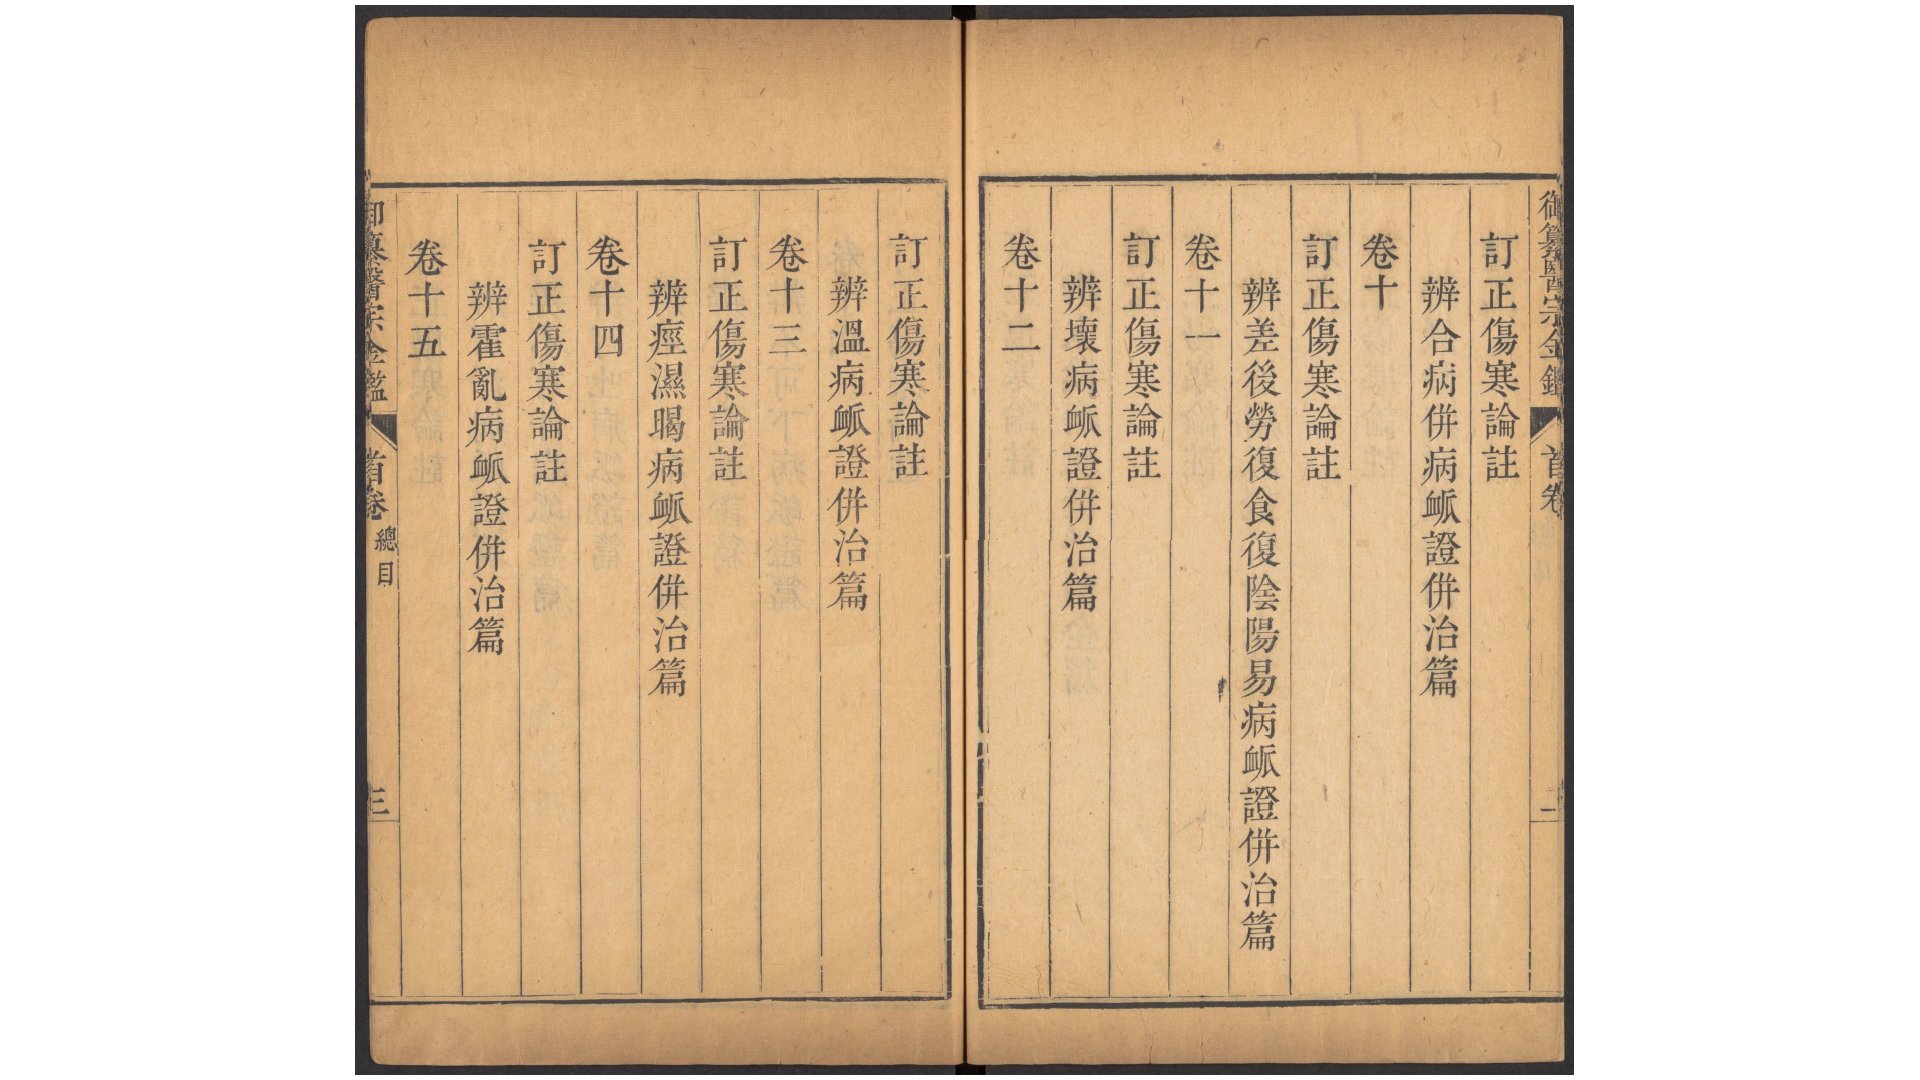 御纂醫宗金鑑 首卷 二
訂正傷寒論註
辨合病併病衇證併治篇
卷十
訂正傷寒論註
辨差後勞復食復陰陽易病衇證併治篇
卷十一
訂正傷寒論註
辨壞病衇證併治篇
卷十二
訂正傷寒論註
辨溫病衇證併治篇
卷十三
訂正傷寒論註
辨痙濕暍病衇證併治篇
卷十四
訂正傷寒論註
辨霍亂病衇證併治篇
卷十五
御纂醫宗金鑑 首卷 總目 三